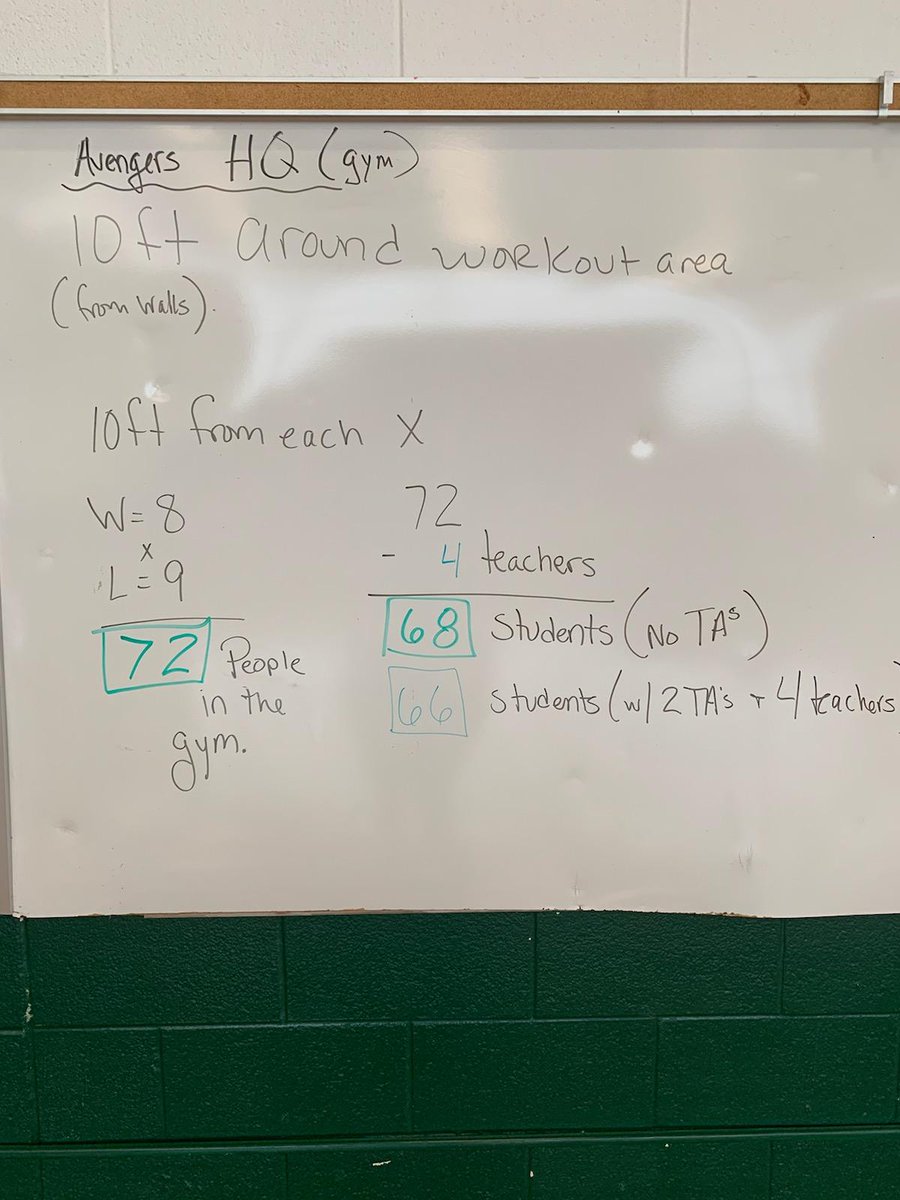 Avengers HQ (gym)
10ft around workout area
(from walls).
10ft from each X
W= 8
x
L = 9
72 People
in the
gym.
72
- 4 teachers
68 Students (No TAs)
66 Students (w/ 2 TA's + 4 teachers)